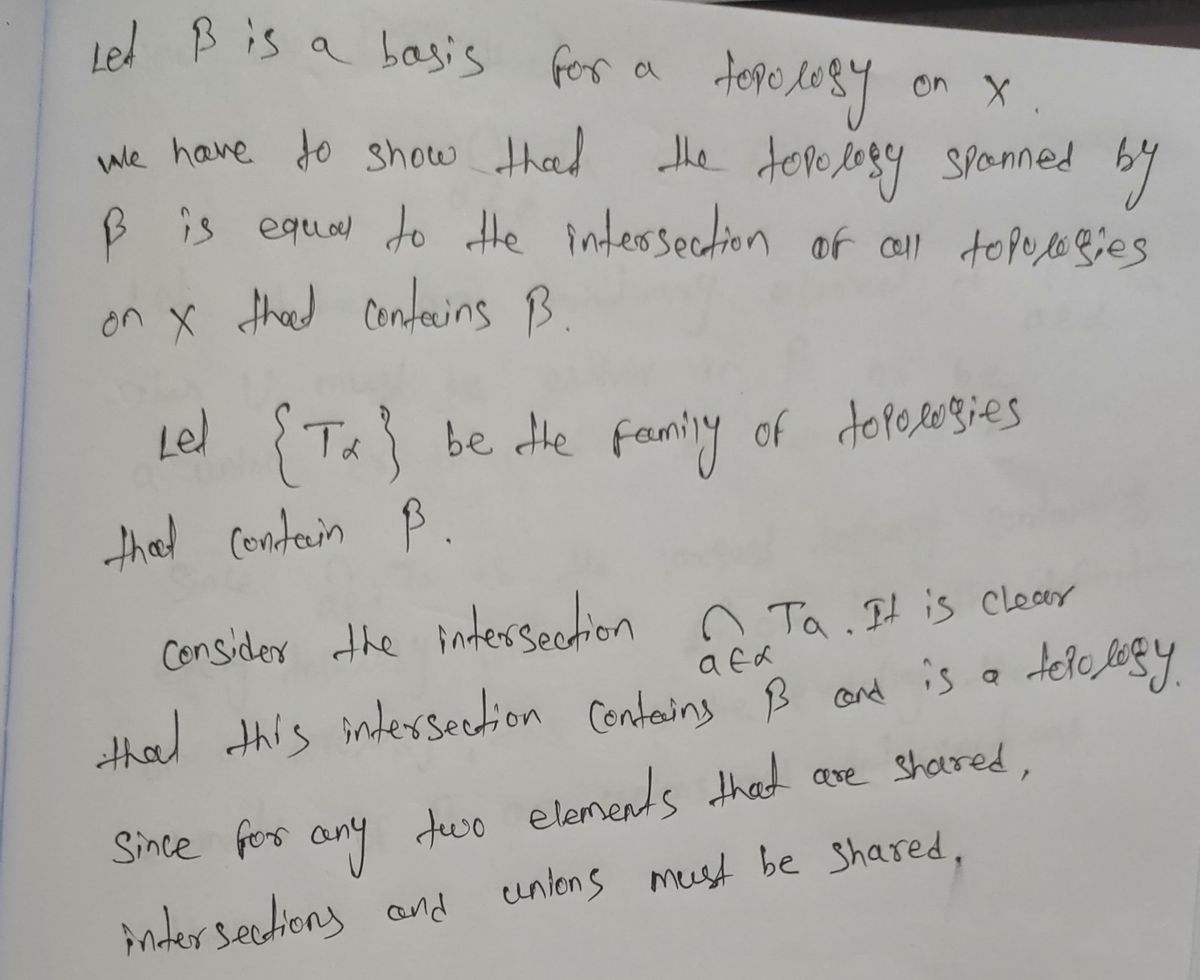 Let β is a basis for a topology on X.
we have to show that the topology spanned by
β is equal to the intersection of all topologies
on X that contains β.
Let {Tα} be the family of topologies
that contain β.
Consider the intersection ∩ Ta. It is clear
a∈α
that this intersection contains β and is a topology.
Since for any two elements that are shared,
intersections and unions must be shared,